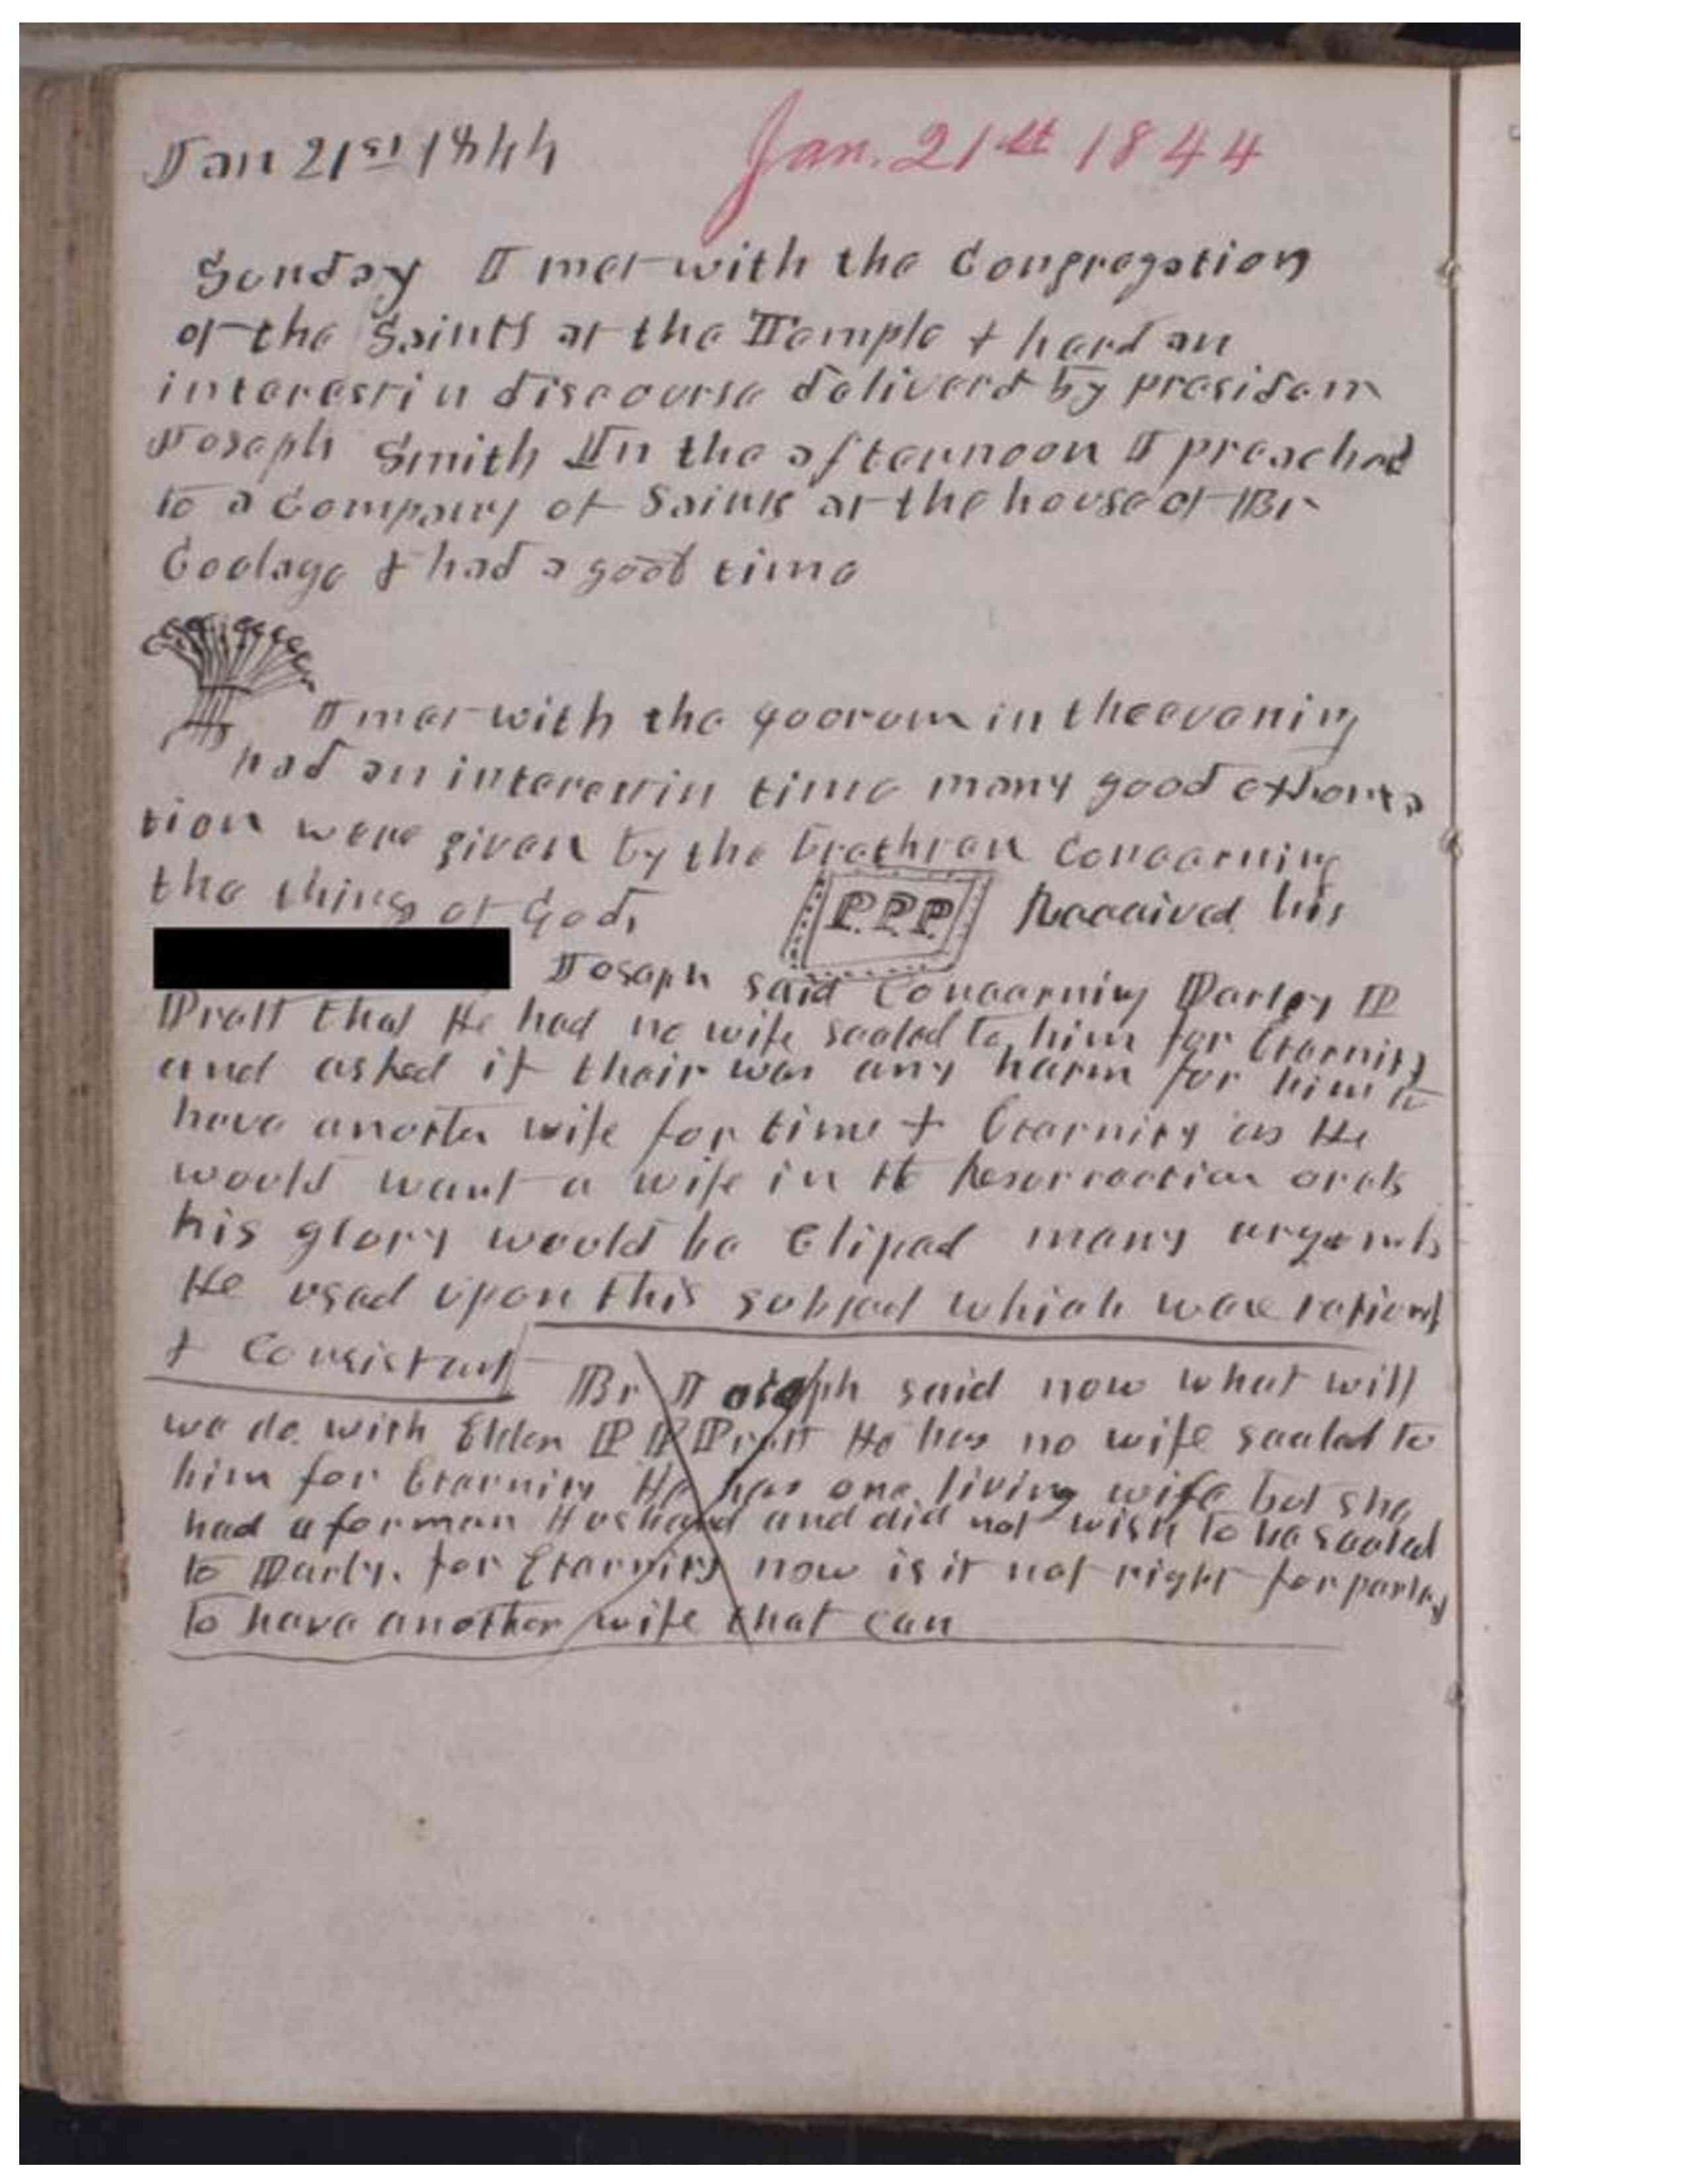 Jan 21st 1844 Jan. 21st 1844
Sunday I met with the Congregation
of the Saints at the Temple & hard an
interestin discourse deliverd by president
Joseph Smith In the afternoon I preached
to a Company of Saints at the house of Br
Coolage & had a good time
I met with the quorum in the evening
had an interestin time many good exhorta
tion were given by the brethren concerning
the things of God,
P.P.P. Received his
Joseph said Concerning Parley P
Pratt that He had no wife sealed to him for Eternity
and asked if their was any harm for him to
have another wife for time & Eternity as He
would want a wife in the Resurrection or els
his glory would be Cliped many arguments
He used upon this subject which ware rational
& Consistant Br Joseph said now what will
we do with Elder P P Pratt He has no wife sealed to
him for Eternity He has one living wife but she
had a former Husband and did not wish to be sealed
to Parly. for Eternity now is it not right for parley
to have another wife that can